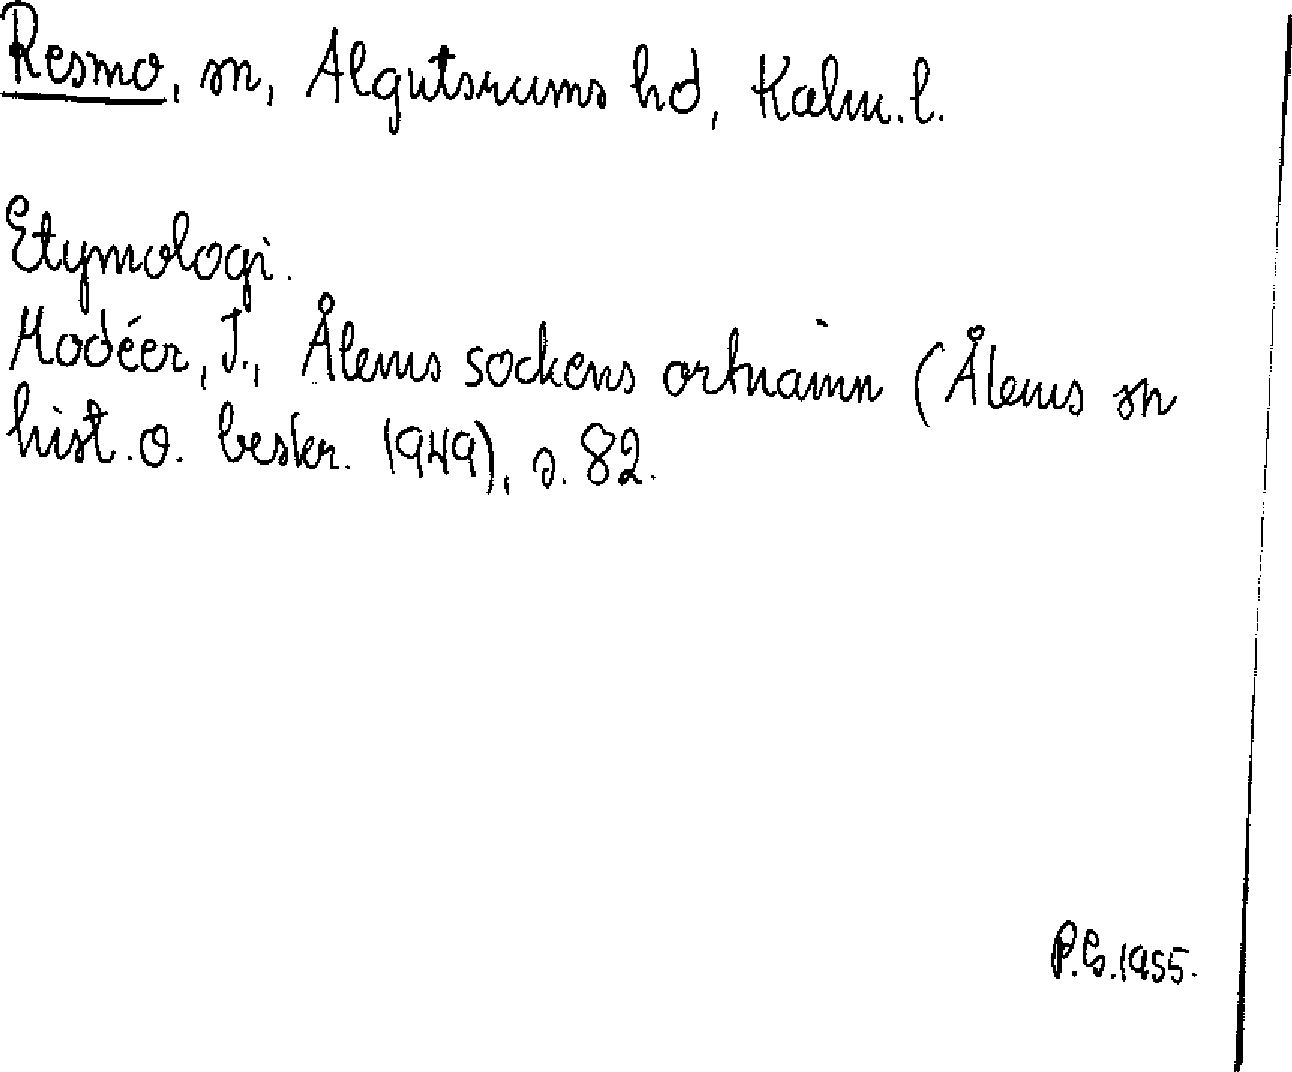 Resmo, sn, Algutsrums hd, Kalm. l.
Etymologi.
Modéer, I., Ålems sockens ortnamn (Ålems sn
hist. o. beskr. 1949), s. 82.
P.G. 1955.